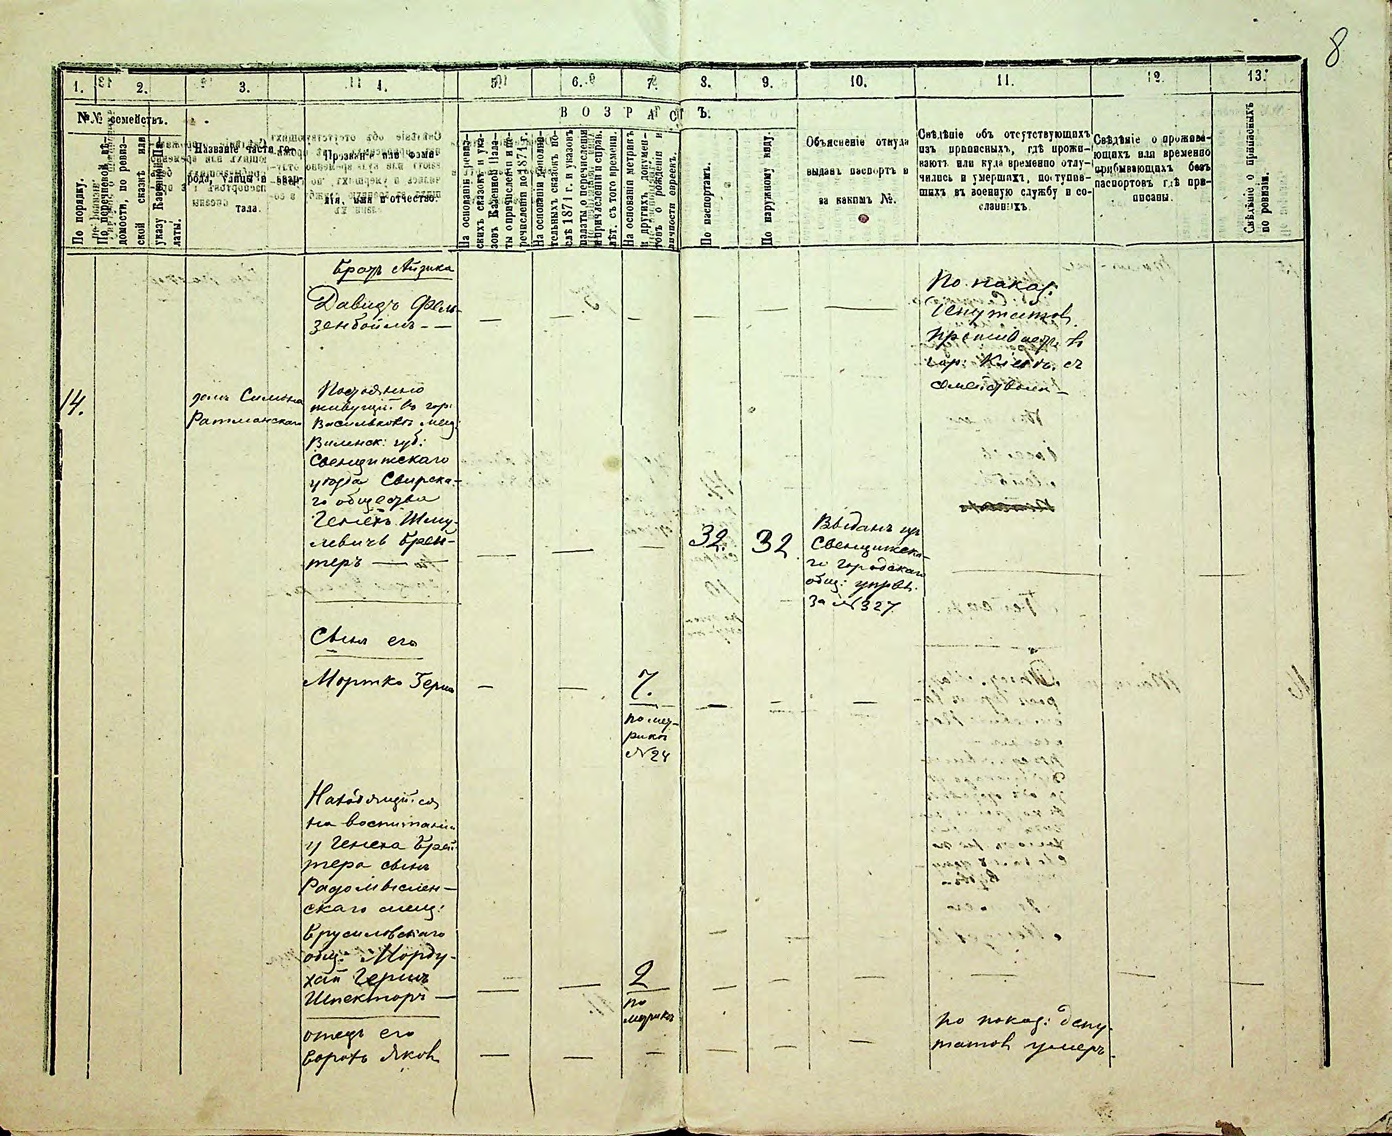 8
1. 2. 3. 4. 5. 6. 7. 8. 9. 10. 11. 12. 13.
№№ семействъ.
По порядку.
По призывной вѣ-
домости, по ревиз-
ской сказкѣ или
указу Казенной Па-
латы.
Названіе части го-
рода, улицы и квар-
тала.
Прозваніе или фами-
лія, имя и отчество.
ВОЗРАСТЪ.
На основаніи ревиз-
скихъ сказокъ и ука-
зовъ Казенной Пала-
ты о причисленіи и пе-
речисленіи до 1871 г.
На основаніи дополни-
тельныхъ сказокъ по-
слѣ 1871 г. и указовъ
палаты о перечисленіи
и причисленіи и справ.
лѣт. съ того времени.
На основаніи метрикъ
и другихъ докумен-
товъ о рожденіи и
личности евреевъ.
По паспортамъ.
По наружному виду.
Объясненіе откуда
выданъ паспортъ и
за какимъ №.
Свѣдѣніе объ отсутствующихъ
изъ приписныхъ, гдѣ прожи-
ваютъ или куда временно отлу-
чились и умершихъ, поступив-
шихъ въ военную службу и со-
сланныхъ.
Свѣдѣніе о прожива-
ющихъ или временно
прибывающихъ безъ
паспортовъ гдѣ при-
писаны.
Свѣдѣніе о приписныхъ
по ревизіи.
Братъ Айзика
Давидъ Фель-
зенбоймъ — —
По показ:
депутатов
проживаетъ в
гор: Киевѣ съ
семействомъ
14.
домъ Симона
Ратманскаго
Постоянно
живущій въ гор:
Васильковѣ мѣщ:
Виленск: губ:
Свенцянскаго
уѣзда Свирска-
го общества
Генехъ Шму-
левичъ Брей-
теръ — —
32. 32
Выданъ изъ
Свенцянска-
го городскаго
общ: управ:
За №327.
Сынъ его
Мортко Герш
7.
по мет-
рикѣ
№24
Находящійся
на воспитаніи
у Генеха Брей-
тера сынъ
Радомысльн-
скаго мѣщ:
Брусиловскаго
общ: Морду-
хай Гершъ
Шпекторъ —
2
по
метрикѣ
отецъ его
Борохъ Яков
по показ: депу-
татов умеръ.